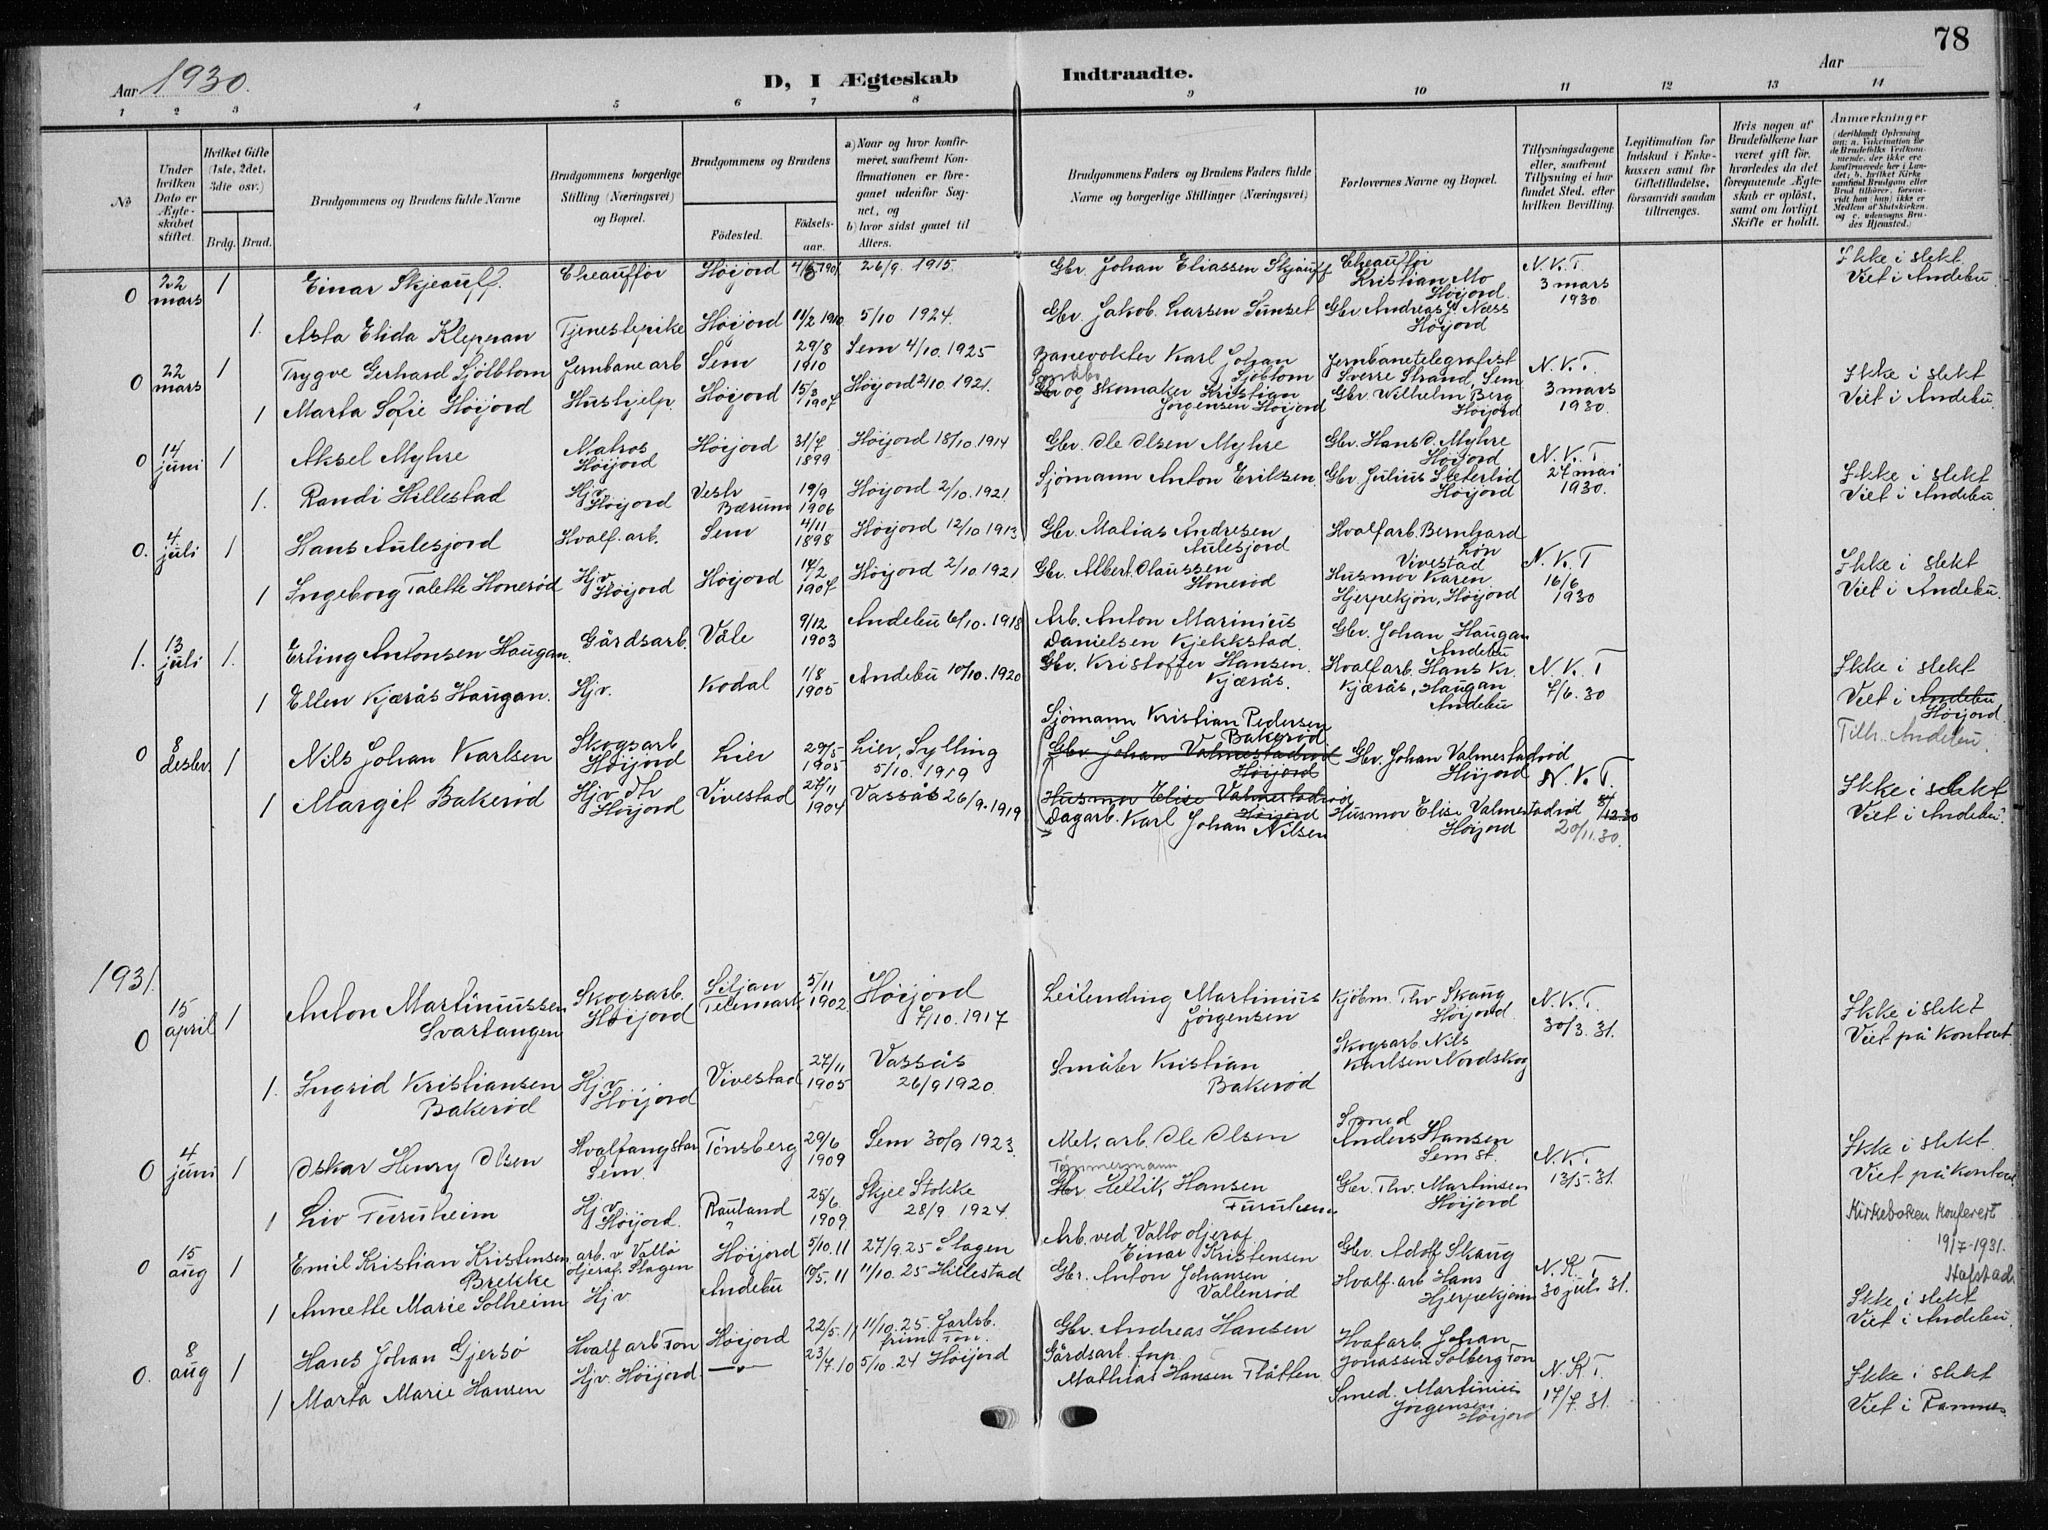 78
Aar 1930.
D, I Ægteskab Indtraadte.
Aar
1 2 3 4 5 6 7 8 9 10 11 12 13 14
No
Under hvilken Dato er Ægteskabet stiftet.
Hvilket Gifte (1ste, 2det, 3die osv.)
Brdg. Brud.
Brudgommens og Brudens fulde Navne
Brudgommens borgerlige Stilling (Næringsvei) og Bopæl.
Brudgommens og Brudens
Födested. Födselsaar.
a) Naar og hvor konfirmeret, saafremt Konfirmationen er foregaaet udenfor Sognet, og
b) hvor sidst gaaet til Alters.
Brudgommens Faders og Brudens Faders fulde Navne og borgerlige Stillinger (Næringsvei)
Forlovernes Navne og Bopæl.
Tillysningsdagene eller, saafremt Tillysning ei har fundet Sted, efter hvilken Bevilling.
Legitimation for Indskud i Enkekassen samt for Giftetilladelse, forsaavidt saadan tiltrænges.
Hvis nogen af Brudefolkene har været gift før, hvorledes da det foregaaende Ægteskab er oplöst, samt om lovligt Skifte er holdt.
Anmærkninger
(deriblandt Oplysning om: a. Vakcination for de Brudefolks Vedkommende, der ikke ere konfirmerede her i Landet; b. hvilket Kirkesamfund Brudgom eller Brud tilhörer, forsaavidt han (hun) ikke er Medlem af Statskirken, og c. udensogns Brudes Hjemsted.)
0 22 mars 1 Einar Skjeauff. Cheauffør Høijord 1901 26/9. 1915. Gbr. Johan Eliassen Skjauff Cheauffør Kristian Mo Høijord. N.K.T. 3 mars 1930 Ikke i slekt
Viet i Andebu
1. Asta Elida Klepan Tjenestepike Høijord 11/2 1910 5/10 1924. Gbr. Jakob Larsen Sunset Gbr. Andreas J. Næss Høijord
0 22 mars 1 Trygve Gerhard Sjöblom Jernbanearb Sem 29/8 1910 Sem 4/10. 1925 Banevokter Karl Johan Sjöblom Jernbanetelegrafist Sverre Strand, Sem N.K.T. 3 mars 1930. Ikke i slekt
Viet i Andebu.
1 Marta Sofie Høijord Hushjelp. Høijord 15/3 1907 Høijord 2/10. 1921. og Skomaker Kristian Jørgensen Høijord Gbr. Wilhelm Berg Høijord
0 14 juni 1 Aksel Myhre Matros Høijord Høijord 31/7 1899 Høijord 18/10. 1914 Gbr. Ole Olsen Myhre Gbr. Hans O. Myhre Høijord N.K.T 27 mai 1930. Ikke i slekt
Viet i Andebu
1. Randi Hillestad Hjv. Høijord Vestr Bærum 19/9 1906 Høijord 2/10. 1921. Sjömann Anton Eriksen Gbr. Julius Sleterlid Høijord
0. 4 juli 1 Hans Aulesjord Hvalf. arb. Sem 4/11 1898 Høijord 12/10 1913 Gbr. Matias Andresen Aulesjord Hvalfarb. Bernhard Løn Vivestad N.K.T 16/6 1930 Ikke i slekt
Viet i Andebu.
1 Ingeborg Talette Honerød Hjv. Høijord Høijord 14/2 1904 Høijord 2/10. 1921 Gbr. Albert Olaussen Honerød Husmor Karen Hjerpekjøn, Høijord
1. 13 juli 1. Erling Antonsen Haugan. Gårdsarb. Våle 9/12 1903 Andebu 6/10. 1918 Arb. Anton Marinius Danielsen Kjekkstad. Gbr. Johan Haugan Andebu N.K.T 7/6. 30 Ikke i slekt
Viet i Andebu Høijord.
Tilh. Andebu
1 Ellen Kjærås Haugan. Hjv. Kodal 1/8 1905 Andebu 10/10. 1920 Gbr. Kristoffer Hansen Kjærås. Hvalfarb. Hans Kr. Kjærås, Haugan Andebu
0 8 desbr. 1 Nils Johan Karlsen Skogsarb. Høijord Lier 29/5 1905 Lier, Sylling 5/10. 1919 Sjömann Kristian Pedersen Bakerød
Gbr. Johan Valmestadrød Høijord Gbr. Johan Valmestadrød Høijord N.K.T. 12.30 Ikke i slekt
Viet i Andebu.
1 Margit Bakerød Hjv. dtr Høijord Vivestad 27/11 1904 Vassås 26/9. 1919 Husmor Elise Valmestadrød Høijord
Dagarb. Karl Johan Nilsen Husmor Elise Valmestadrød Høijord 20/11. 30.
1931.
0 15 april 1 Anton Martinussen Svartangen Skogsarb. Høijord Siljan Telemark 5/11 1902. Høijord 7/10. 1917 Leilending Martinius Jørgensen Kjøbm. Thv Skaug Høijord. N.K.T. 30/3. 31. Ikke i slekt
Viet på kontoret
1. Ingrid Kristiansen Bakerød Hjv Høijord Vivestad 27/11 1905 Vassås 26/9 1920. Småbr Kristian Bakerød Skogsarb. Nils Karlsen Nordskog
0 4 juni 1 Oskar Henry Olsen Hvalfangstarb Sem. Tønsberg 29/6 1909 Sem 30/9 1923. Mek. arb. Ole Olsen Smed Anders Hansen Sem st. N.K.T. 13/5. 31. Ikke i slekt.
Viet på kontoret
1 Liv Furuheim Hjv Høijord. Rauland 25/6 1909 Skjee Stokke 28/9. 1924. Tømmermann
Gbr. Hellik Hansen Furuheim Gbr. Thv. Martinsen Høijord
Kirkeboken konferert
19/7-1931.
Hafstad.
0 15 aug 1 Emil Kristian Kristensen Brekke arb. v Vallø oljeraf. Slagen Høijord 5/10. 11 27/9. 25 Slagen Arb. ved Vallø oljeraf. Einar Kristensen Gbr. Adolf Skaug N.K.T 30 juli 31. Ikke i slekt
Viet i Andebu.
1 Annette Marie Solheim Hjv Andebu 19/5. 11 11/10. 25 Hillestad Gbr. Anton Johansen Vallenrød Hvalf. arb Hans Hjerpekjønn
0. 8 aug 1 Hans Johan Gjersø Hvalf arb Ton Høijord 22/5. 11 11/10. 25. Jarlsb. frim. Ton. Gbr. Andreas Hansen Hvafarb. Johan Jonassen Solberg Ton N.K.T. 17/7. 31. Ikke i slekt
Viet i Ramnes.
1 Marta Marie Hansen Hjv. Høijord. —"— 23/7. 10 5/10. 24 Høijord Gårdsarb. fnp. Mathias Hansen Flåtten Smed. Martinius Jørgensen Høijord